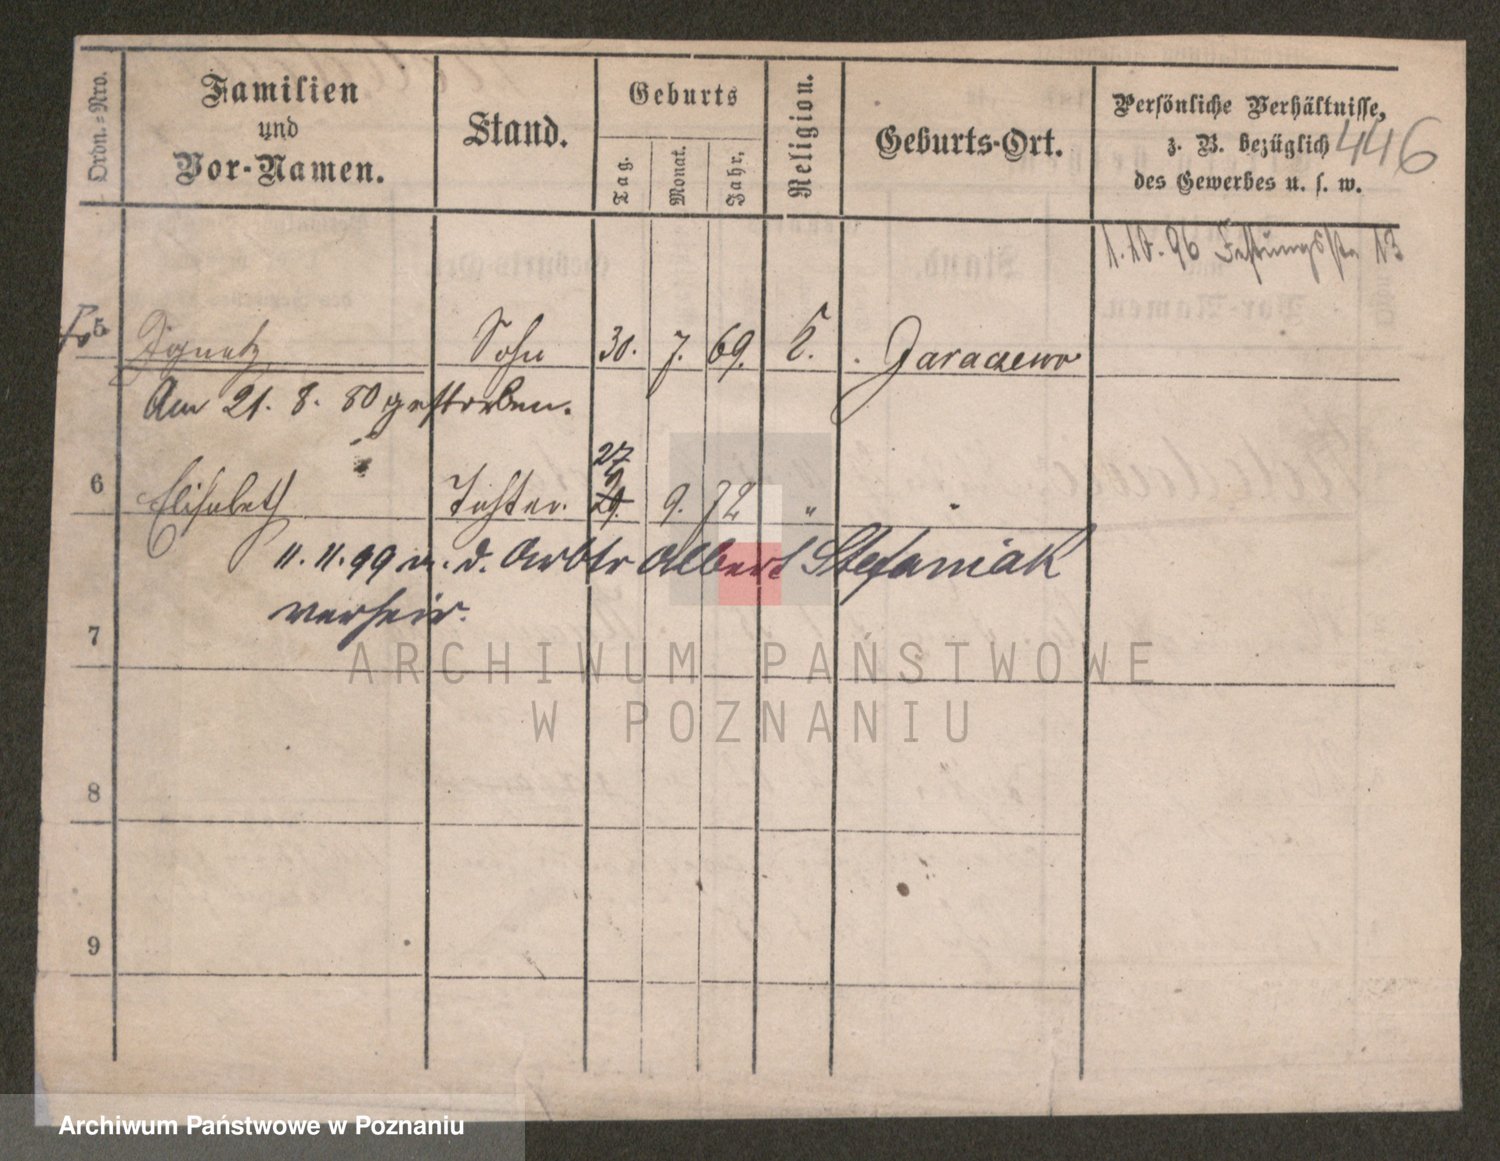 Ordn.-Nro.
Familien
und
Vor-Namen.
Stand.
Geburts
Tag.
Monat.
Jahr.
Religion.
Geburts-Ort.
Persönliche Verhältnisse,
z. B. bezüglich
des Gewerbes u. s. w.
446
1.10.96 Festungsstr 13
5 Ignatz Sohn 30. 7. 69. k. Jaraczewo
Am 21. 8. 80 gestorben.
27
9
6 Elisabeth Tochter. 29. 9. 72 "
11.11.99 m. d. Arbtr Albert Stefaniak
verheir.
7
8
9
ARCHIWUM PAŃSTWOWE
W POZNANIU
Archiwum Państwowe w Poznaniu